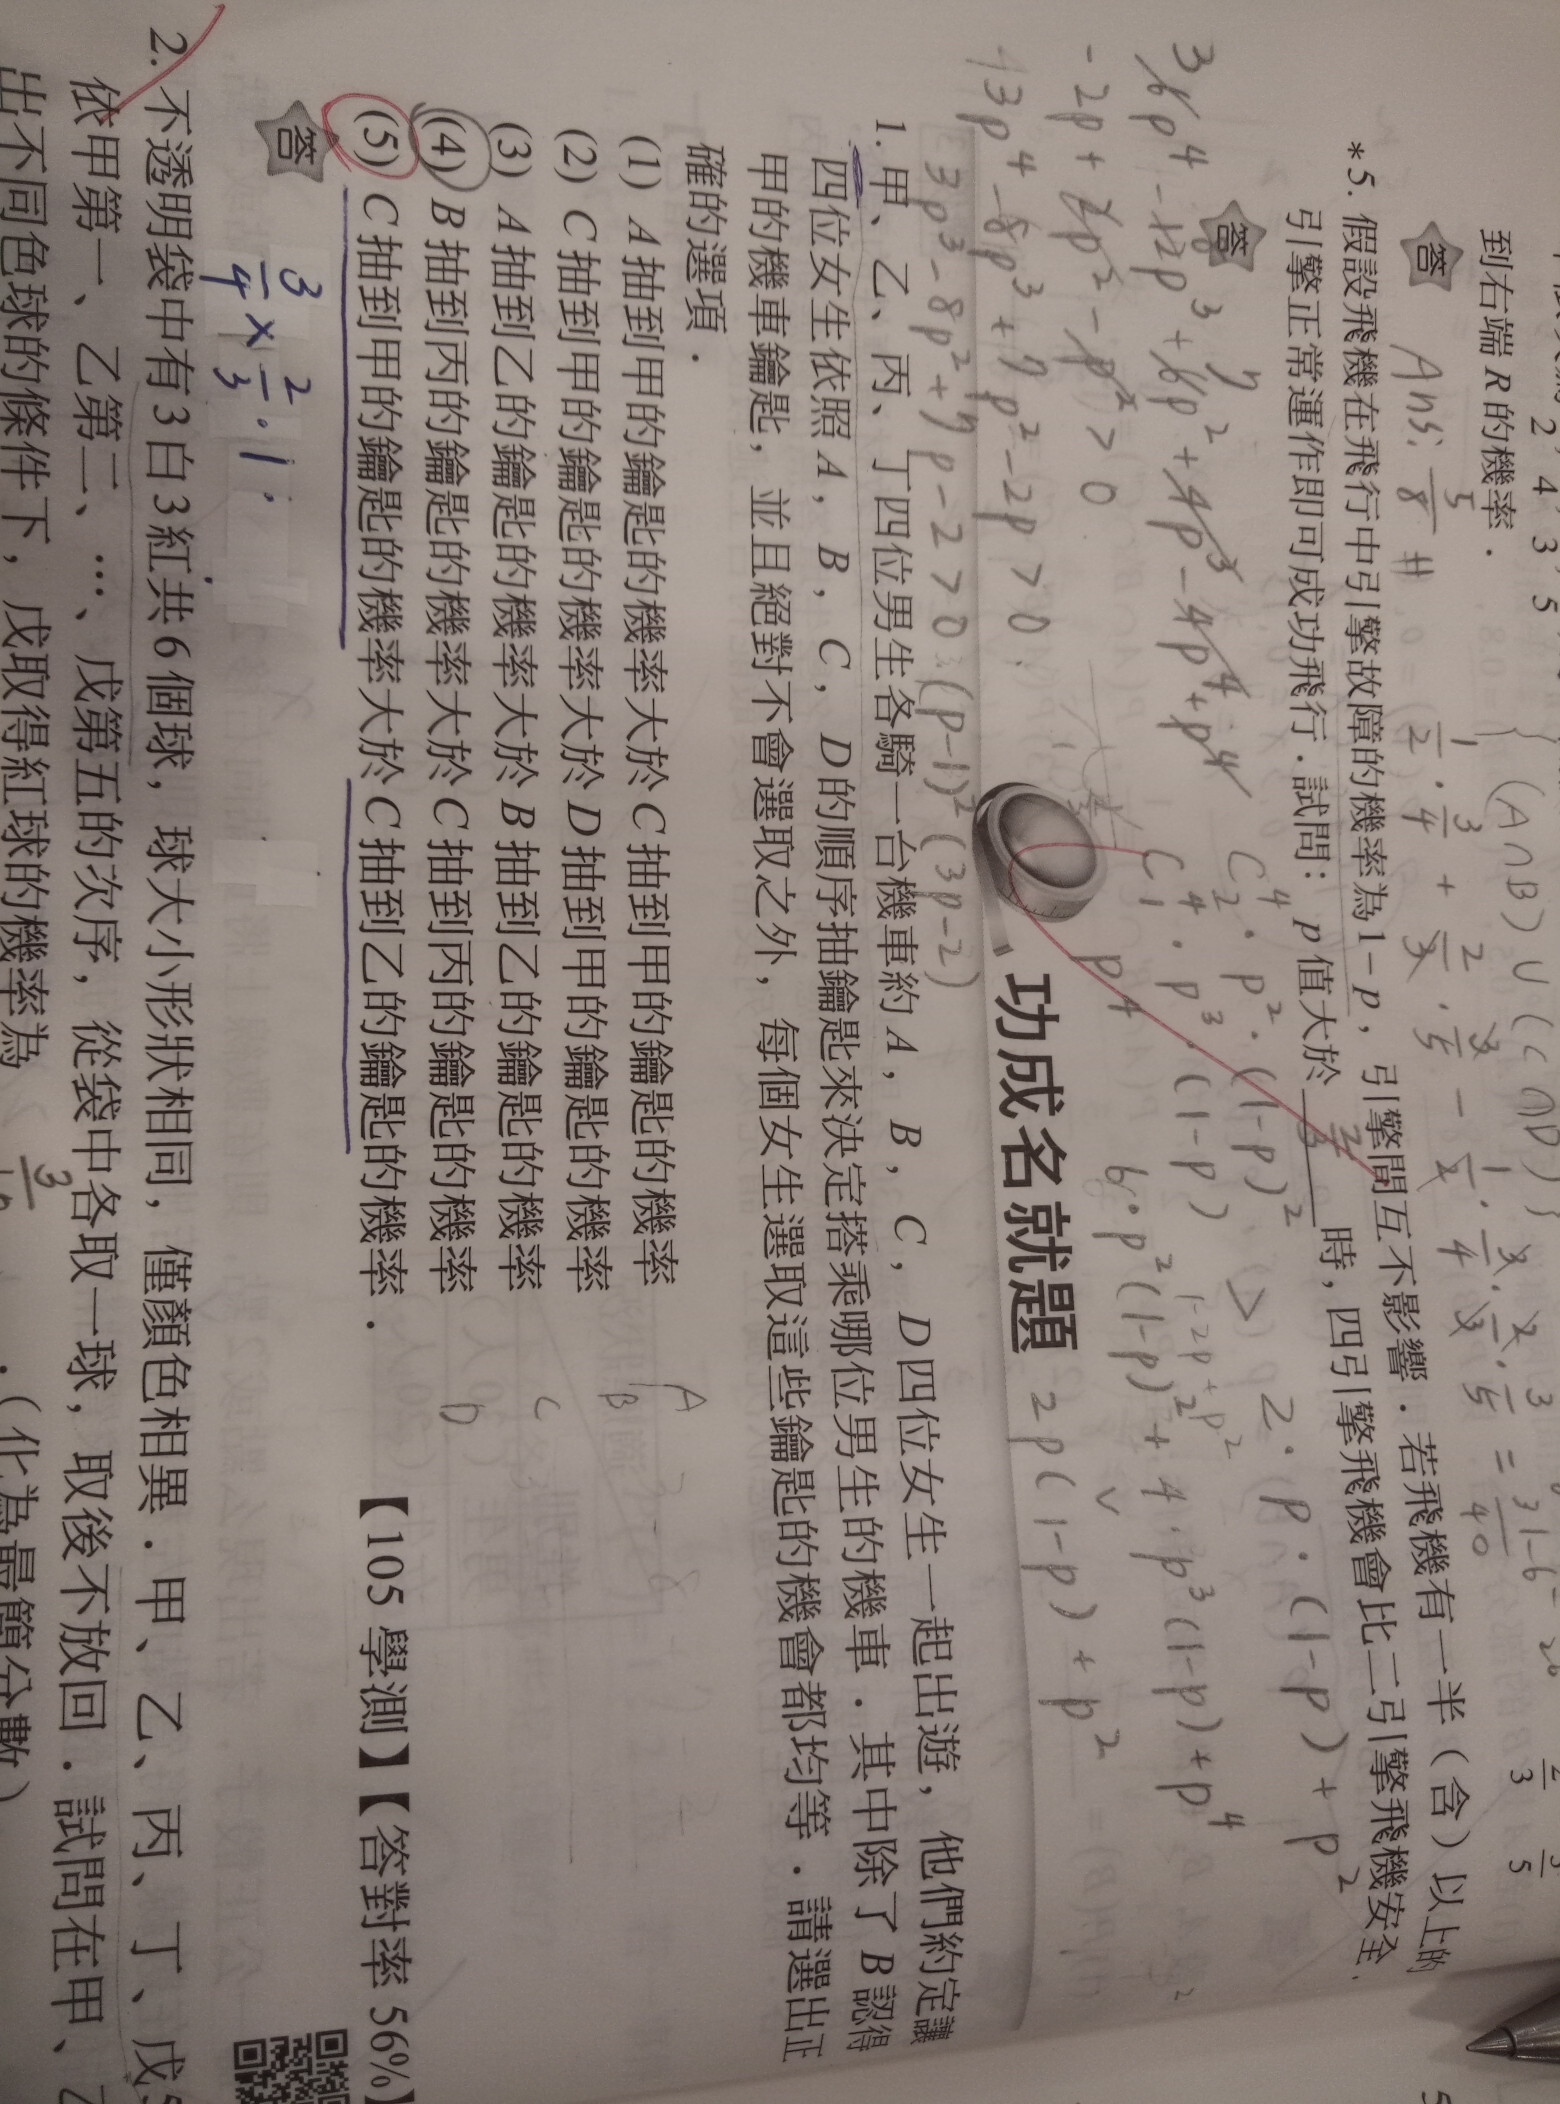 2, 4, 3, 5
到右端 R 的機率．
{(A∩B)∪(C∩D)}
答 Ans: 5/8 #
1/2 · 3/4 +
= 31
40
*5. 假設飛機在飛行中引擎故障的機率為 1－p，引擎間互不影響．若飛機有一半（含）以上的
引擎正常運作即可成功飛行．試問：p 值大於 時，四引擎飛機會比二引擎飛機安全．
答
C⁴₂ · p² · (1-p)² > 2 · p · (1-p) + p²
C⁴₁ · p³ · (1-p)
p⁴
6 · p²(1-p)² + 4 · p³(1-p) + p⁴
1-2p+p²
2p(1-p) + p²
-2p + 2p² - p² > 0
3p⁴ - 8p³ + 7p² - 2p > 0
3p³ - 8p² + 7p - 2 > 0 (p-1)²(3p-2)
功成名就題
1. 甲、乙、丙、丁四位男生各騎一台機車約 A，B，C，D 四位女生一起出遊，他們約定讓
四位女生依照 A，B，C，D 的順序抽鑰匙來決定搭乘哪位男生的機車．其中除了 B 認得
甲的機車鑰匙，並且絕對不會選取之外，每個女生選取這些鑰匙的機會都均等．請選出正
確的選項．
(1) A 抽到甲的鑰匙的機率大於 C 抽到甲的鑰匙的機率
(2) C 抽到甲的鑰匙的機率大於 D 抽到甲的鑰匙的機率
(3) A 抽到乙的鑰匙的機率大於 B 抽到乙的鑰匙的機率
(4) B 抽到丙的鑰匙的機率大於 C 抽到丙的鑰匙的機率
(5) C 抽到甲的鑰匙的機率大於 C 抽到乙的鑰匙的機率．
A
B
C
D
【105 學測】【答對率 56%】
答
3/4 × 2/3 · 1 ·
2. 不透明袋中有 3 白 3 紅共 6 個球，球大小形狀相同，僅顏色相異．甲、乙、丙、丁、戊 5
依甲第一、乙第二、…、戊第五的次序，從袋中各取一球，取後不放回．試問在甲、乙
出不同色球的條件下，戊取得紅球的機率為 ．（化為最簡分數）